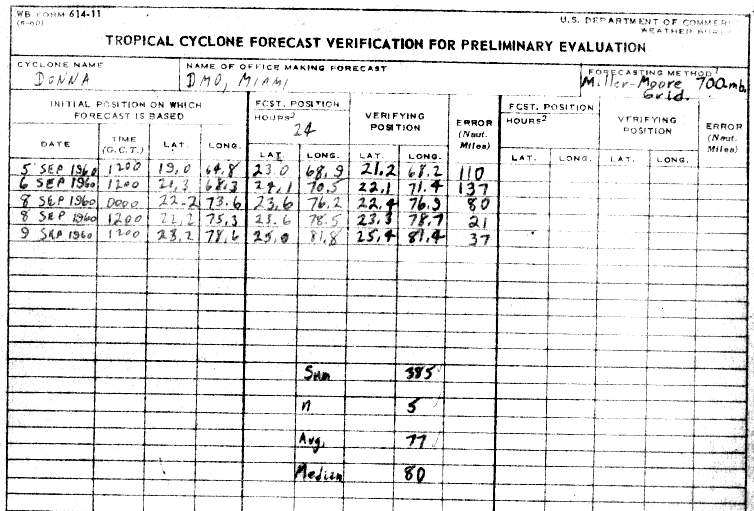 WB FORM 614-11
(5-60)
U.S. DEPARTMENT OF COMMERC
WEATHER BUREA
TROPICAL CYCLONE FORECAST VERIFICATION FOR PRELIMINARY EVALUATION
CYCLONE NAME NAME OF OFFICE MAKING FORECAST FORECASTING METHOD1
DONNA DMO, MIAMI Miller-Moore 700mb.
Grid.
INITIAL POSITION ON WHICH FORECAST IS BASED FCST. POSITION HOURS2 24 VERIFYING POSITION ERROR (Naut. Miles) FCST. POSITION HOURS2 VERIFYING POSITION ERROR (Naut. Miles)
DATE TIME (G.C.T.) LAT. LONG. LAT. LONG. LAT. LONG. LAT. LONG. LAT. LONG.
5 SEP 1960 1200 19.0 64.8 23.0 68.9 21.2 68.2 110
6 SEP 1960 1200 21.3 68.3 24.1 70.5 22.1 71.4 137
8 SEP 1960 0000 22.2 73.6 23.6 76.2 22.4 76.9 80
8 SEP 1960 1200 22.2 75.3 23.6 78.5 23.3 78.7 21
9 SEP 1960 1200 23.2 78.6 25.0 81.8 25.4 81.4 37
Sum 385
n 5
Avg. 77
Median 80